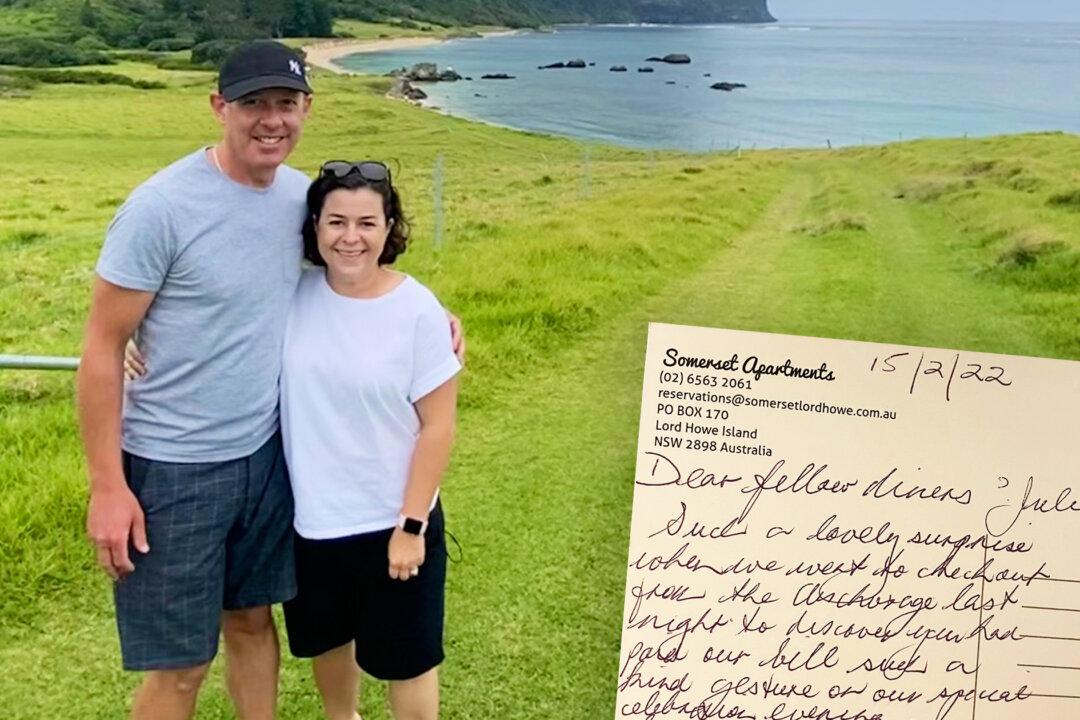 Somerset Apartments
15/2/22
(02) 6563 2061
reservations@somersetlordhowe.com.au
PO BOX 170
Lord Howe Island
NSW 2898 Australia
Dear fellow diners ? Juli
Such a lovely surprise
when we went to check out
from the last
night to discover you had
paid our bill such a
kind gesture on our special
celebration evening